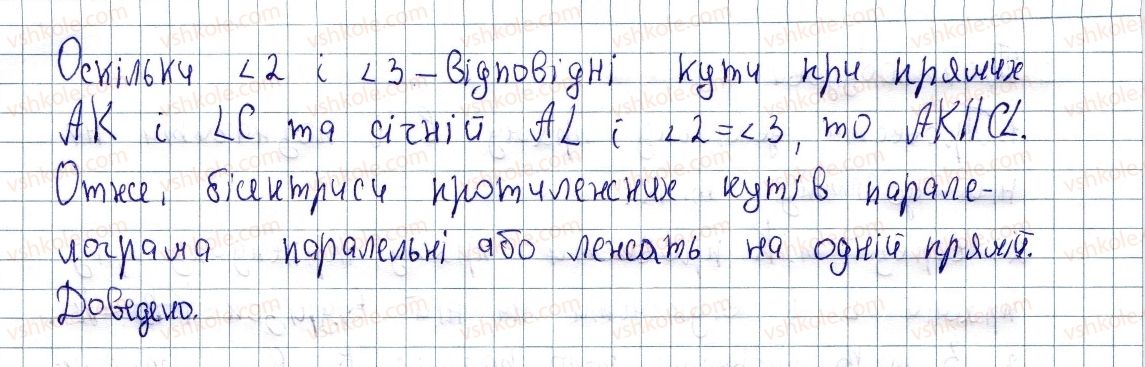 Оскільки ∠2 і ∠3 – відповідні кути при прямих
AK і LC та січній AL і ∠2=∠3, то AK||CL.
Отже, бісектриси протилежних кутів парале-
лограма паралельні або лежать на одній прямій.
Доведено.